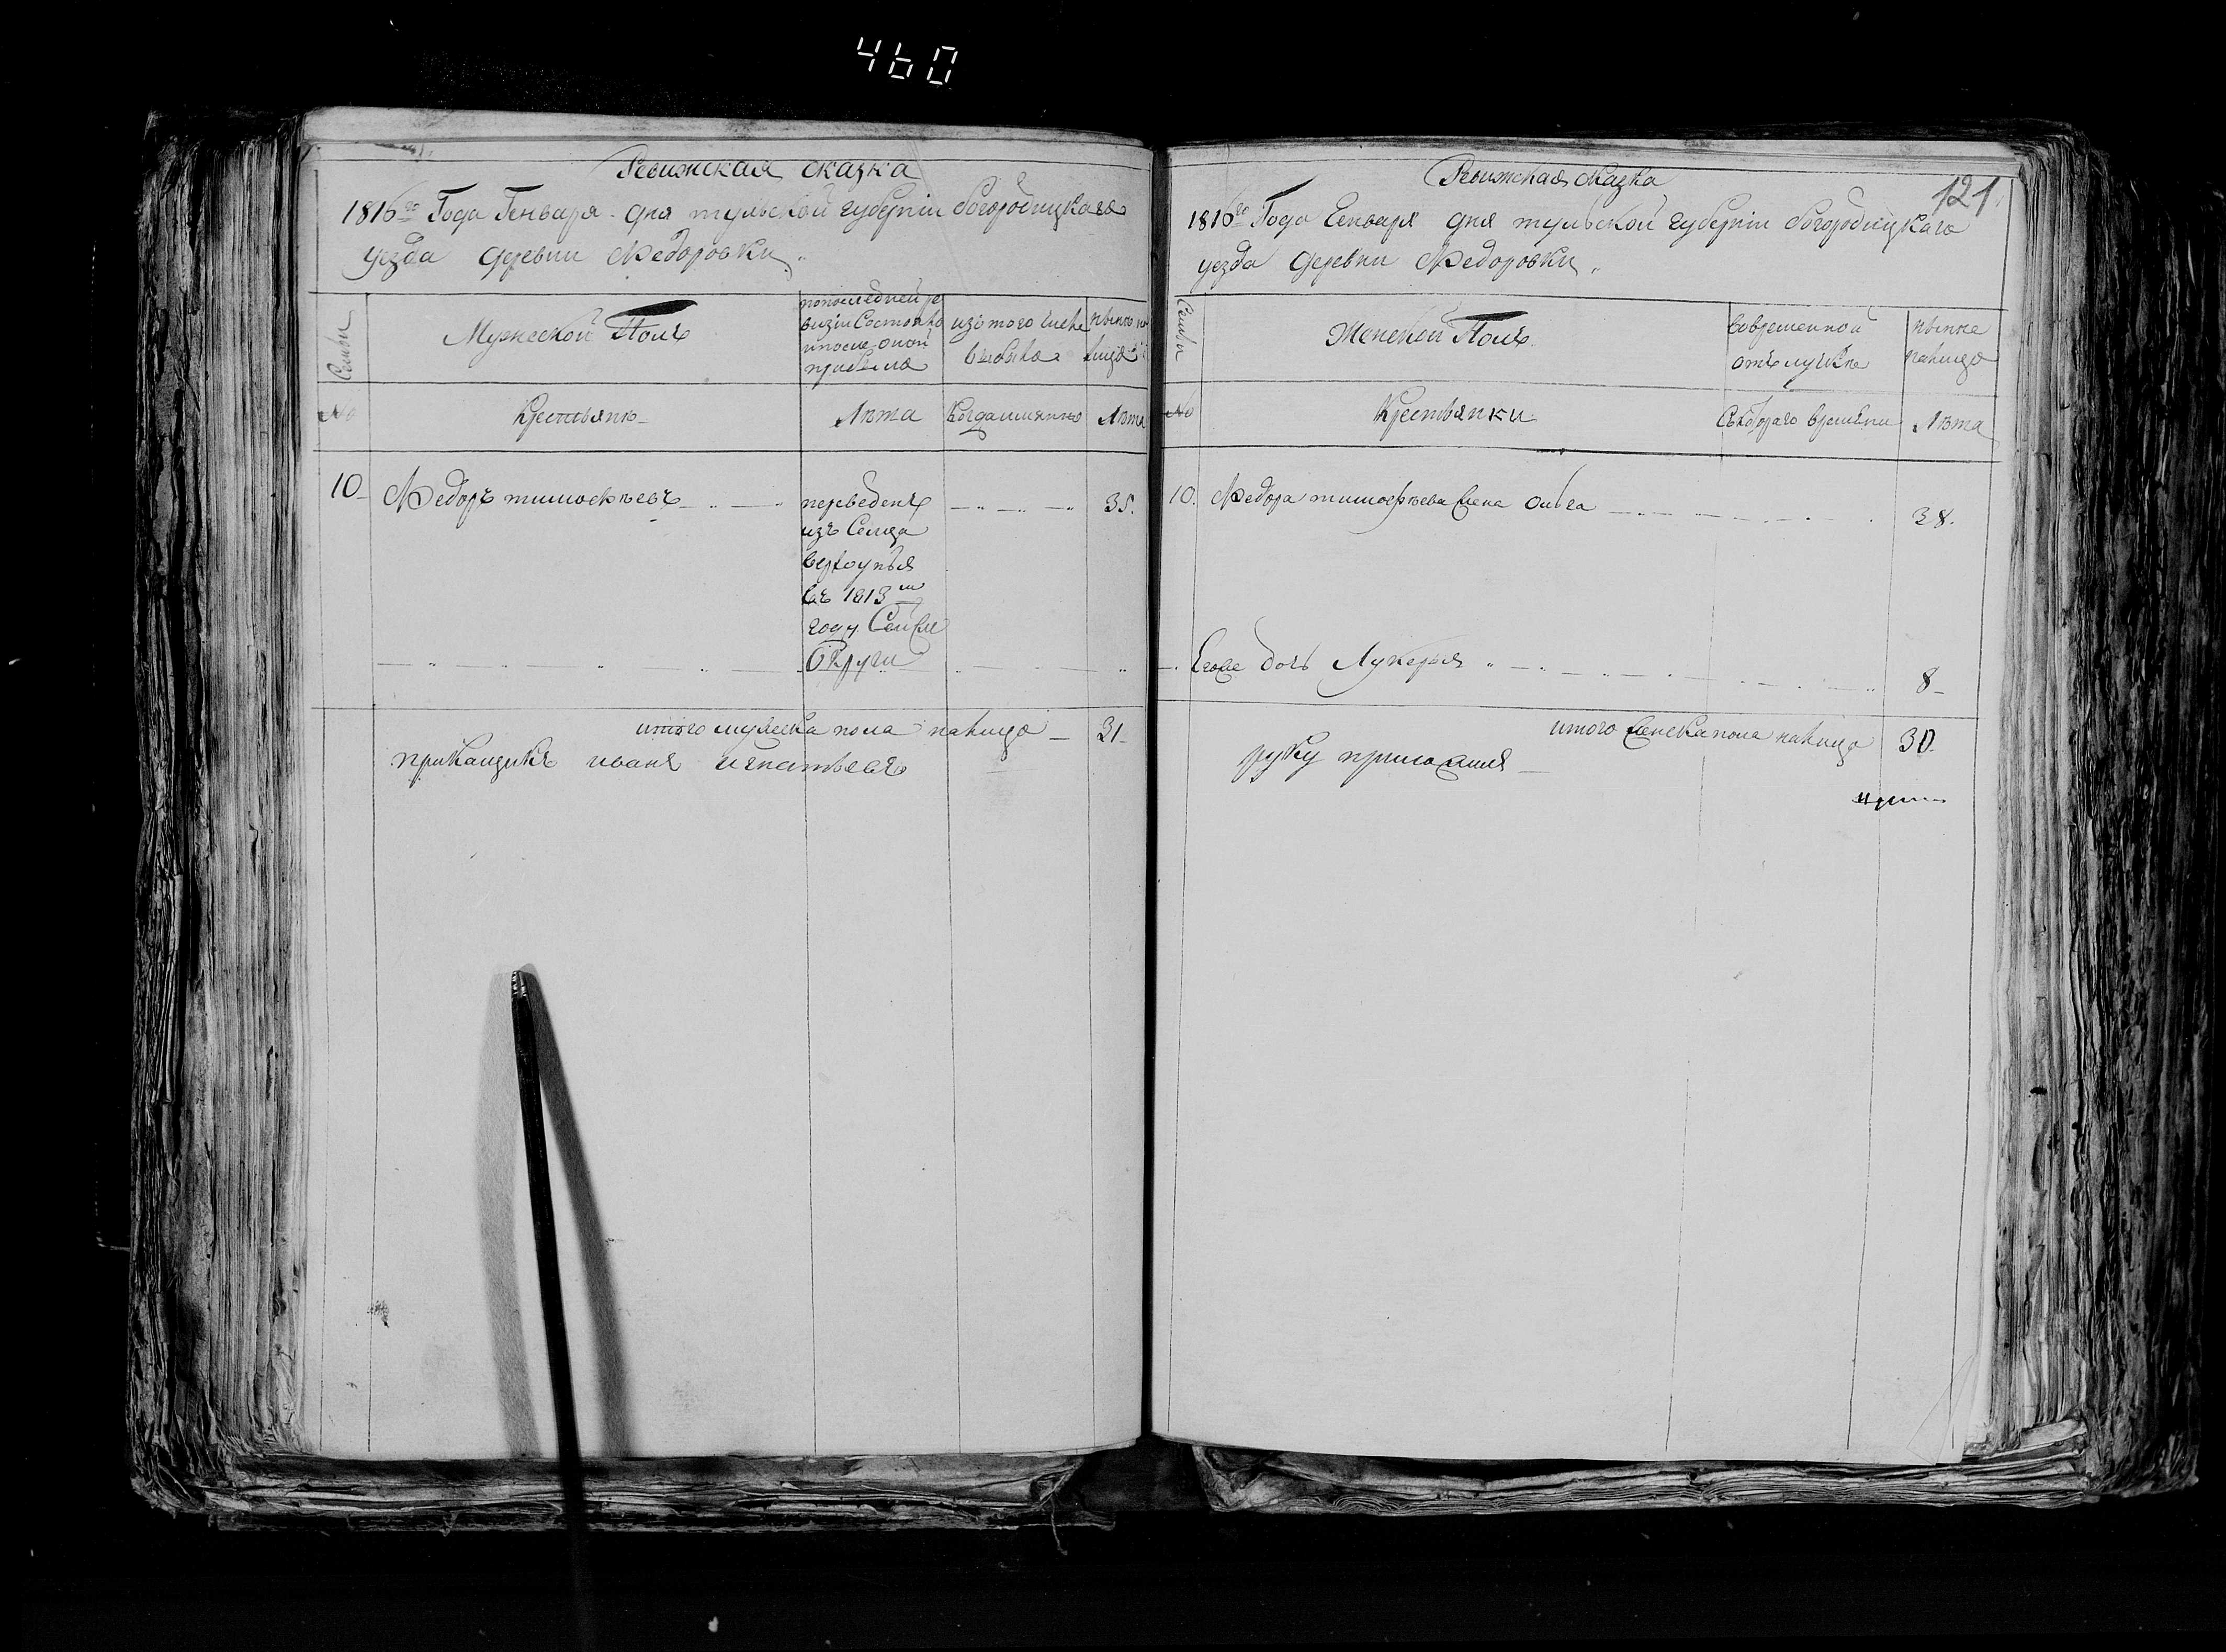 460
Ревижская сказка
1816го Года Генваря дня тульской губернiи богородицкаго
уезда деревни Федоровки
Семьи
Мужеской Полъ
попоследней ре
визiи Состояло
ипосле оной
прибыло
изъ того числа
выбыло
ныне на
лицо
№
Крестьяне
Лѣта
Когда имянно
Лѣта
10
Федоръ тимофѣевъ
переведенъ
изъ Селца
верхоупья
въ 1813м
году Сей же
Округи
35.
итого мужеска пола налицо 31
прикащикъ иванъ игнатьевъ
121
Ревижская сказка
1816го Года Генваря дня тульской губернiи богородицкаго
уезда деревни Федоровки
Семьи
Женской Полъ
вовременной
отълучке
ныне
налицо
№
Крестьянки
Съкотораго времени
Лѣта
10. Федора тимофѣева жена Ольга 38.
Егоже дочь Лукерья 8
итого женска пола налицо 30
руку приложилъ